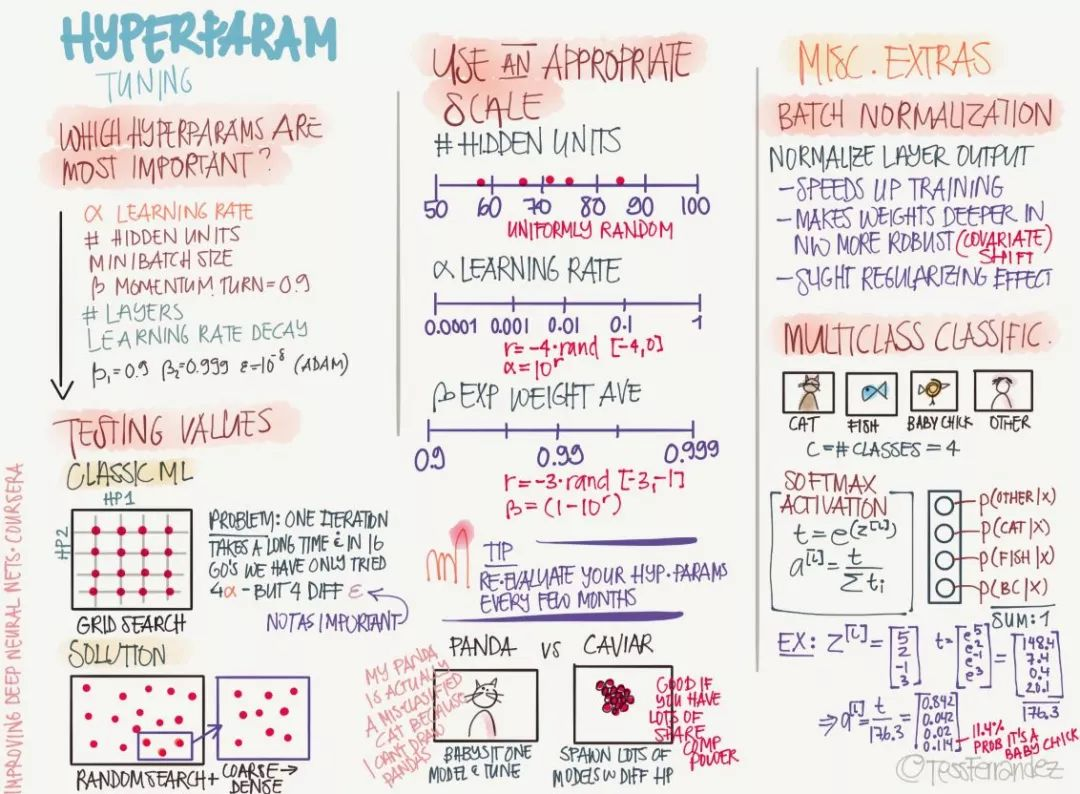 HYPERPARAM
TUNING
WHICH HYPERPARAMS ARE
MOST IMPORTANT?
α LEARNING RATE
# HIDDEN UNITS
MINIBATCH SIZE
β MOMENTUM TURN = 0.9
# LAYERS
LEARNING RATE DECAY
β₁=0.9 β₂=0.999 ε=10⁻⁸ (ADAM)
TESTING VALUES
CLASSIC ML
HP1
HP2
GRID SEARCH
PROBLEM: ONE ITERATION
TAKES A LONG TIME & IN 16
GO'S WE HAVE ONLY TRIED
4α - BUT 4 DIFF ε
NOT AS IMPORTANT
SOLUTION
RANDOM SEARCH +
COARSE→
DENSE
IMPROVING DEEP NEURAL NETS · COURSERA
USE AN APPROPRIATE
SCALE
# HIDDEN UNITS
50 60 70 80 90 100
UNIFORMLY RANDOM
α LEARNING RATE
0.0001 0.001 0.01 0.1 1
r=-4·rand [-4,0]
α=10ʳ
β EXP WEIGHT AVE
0.9 0.99 0.999
r=-3·rand [-3,-1]
β=(1-10ʳ)
TIP
RE-EVALUATE YOUR HYP.PARAMS
EVERY FEW MONTHS
PANDA VS CAVIAR
MY PANDA
IS ACTUALLY
A MISCLASSIFIED
CAT BECAUSE
I CAN'T DRAW
PANDAS
BABYSIT ONE
MODEL & TUNE
GOOD IF
YOU HAVE
LOTS OF
SHARE
COMP
POWER
SPAWN LOTS OF
MODELS W DIFF HP
MISC. EXTRAS
BATCH NORMALIZATION
NORMALIZE LAYER OUTPUT
- SPEEDS UP TRAINING
- MAKES WEIGHTS DEEPER IN
NW MORE ROBUST (COVARIATE)
SHIFT
- SLIGHT REGULARIZING EFFECT
MULTICLASS CLASSIFIC.
CAT FISH BABY CHICK OTHER
C = # CLASSES = 4
SOFTMAX
ACTIVATION
t = e^(z^[L])
a^[L] = t / Σtᵢ
P(OTHER|X)
P(CAT|X)
P(FISH|X)
P(BC|X)
SUM: 1
EX: Z^[L] = [5 2 -1 3] t = [e⁵ e² e⁻¹ e³] = [148.4 7.4 0.4 20.1]
176.3
⇒ a^[L] = t / 176.3 = [0.842 0.042 0.02 0.114]
11.4%
PROB IT'S A
BABY CHICK
@TessFerrandez